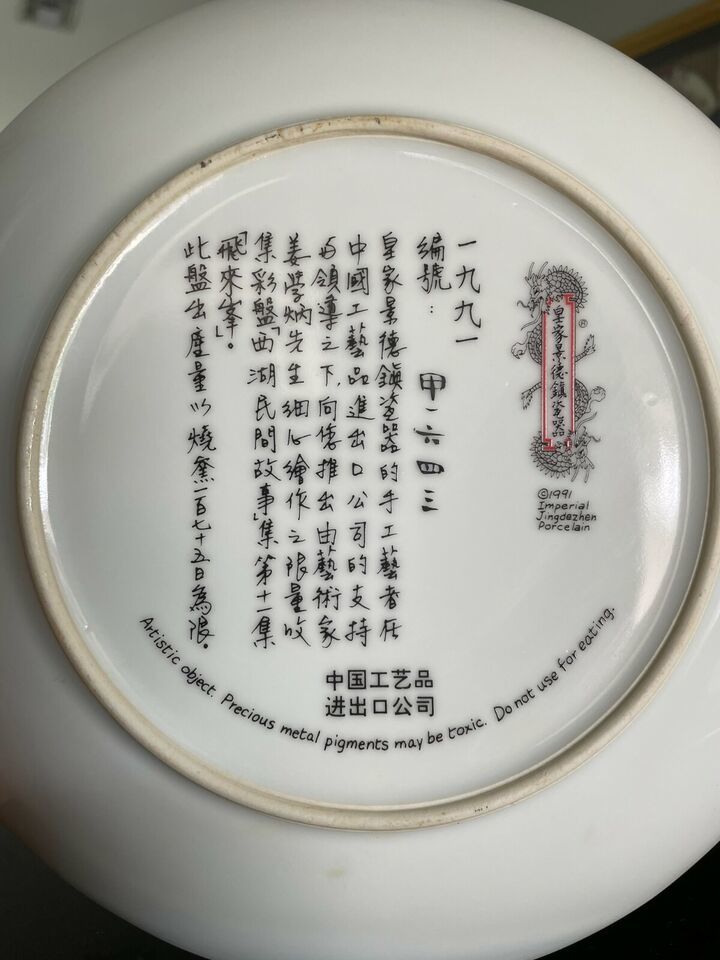 皇家景德鎮瓷器
®
©1991
Imperial
Jingdezhen
Porcelain
一九九一
編號：甲-六四三
皇家景德鎮瓷器的手工藝者在
中國工藝品進出口公司的支持
与領導之下,向您推出由藝術家
姜學炳先生細心繪作之限量收
集彩盤「西湖民間故事」集第十一集
「飛來峯」。
此盤出產量以燒窯一百七十五日為限。
中国工艺品
进出口公司
Artistic object. Precious metal pigments may be toxic. Do not use for eating.